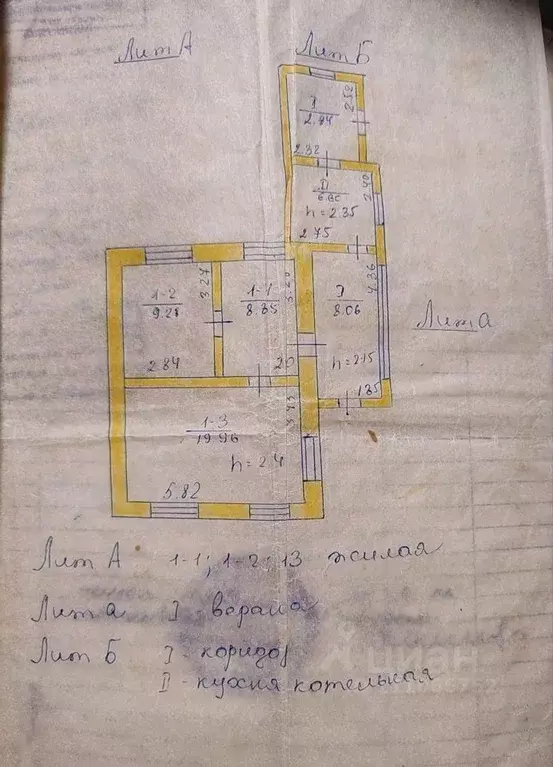 Лит А
Лит Б
I
2.94
2.52
2.32
II
h = 2.35
2.40
2.75
1-2
3.27
2.84
1-1
8.35
I
8.06
4.36
h = 2.15
1.85
Лит а
1-3
19.96
3.43
h = 2.4
5.82
Лит А 1-1; 1-2; 13 жилая
Лит а I - верана
Лит Б I - коридор
II - кухня котельная
циан